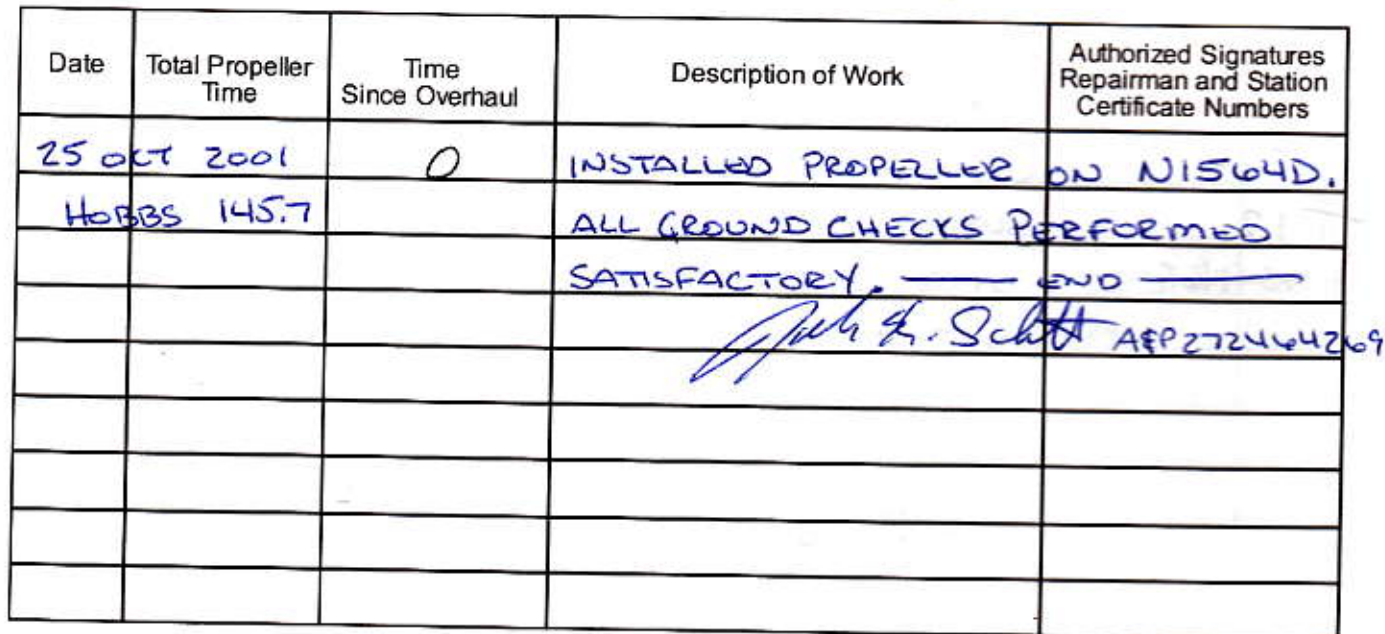 Date Total Propeller Time Time Since Overhaul Description of Work Authorized Signatures Repairman and Station Certificate Numbers
25 OCT 2001 0 INSTALLED PROPELLER ON N1564D.
HOBBS 145.7 ALL GROUND CHECKS PERFORMED
SATISFACTORY. — END —
A&P272464269